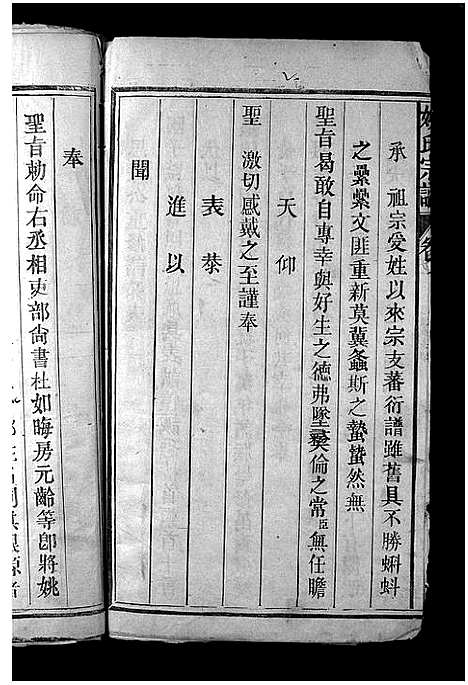 姚氏宗譜
承 祖宗受姓以來宗支蕃衍譜雖舊具不勝蝌蚪
之纍纍文匪重新莫冀螽斯之蟄蟄然無
聖旨曷敢自專幸與好生之德弗墜彝倫之常臣無任瞻
天仰
聖 激切感戴之至謹奉
表 㳟
進以
聞
奉
聖旨勅命右丞相吏部尙書杜如晦房元齡等卽將姚